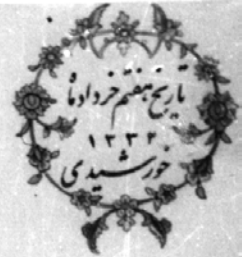 تاریخ هفتم خرداد ماه
۱۳۳۲
خورشیدی